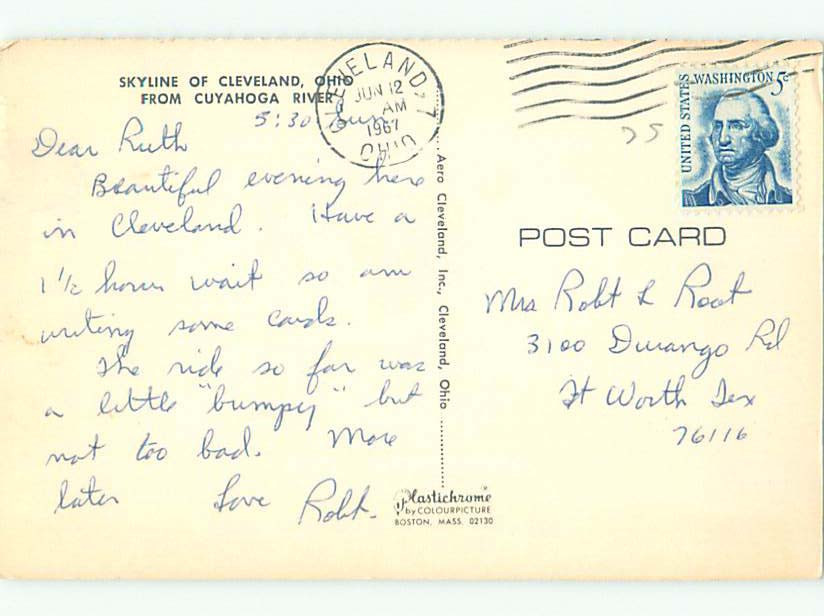 SKYLINE OF CLEVELAND, OHIO
FROM CUYAHOGA RIVER
5:30 Sun.
Dear Ruth
Beautiful evening here
in Cleveland. Have a
1 1/2 hours wait so am
writing some cards.
The ride so far was
a little "bumpy" but
not too bad. More
later Love Robt.
CLEVELAND,
JUN 12
AM
1967
OHIO
Aero Cleveland, Inc., Cleveland, Ohio
Plastichrome
by COLOURPICTURE
BOSTON, MASS. 02130
UNITED STATES
WASHINGTON 5¢
75
POST CARD
Mrs Robt L Root
3100 Durango Rd
Ft Worth Tex
76116